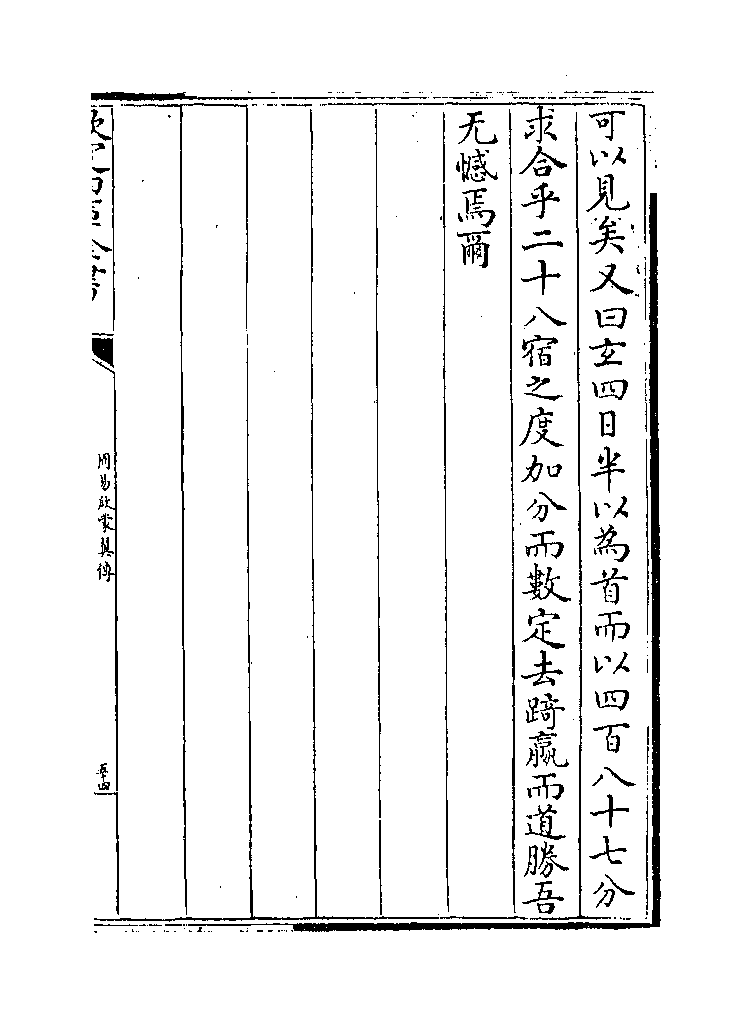 可以見矣又曰玄四日半以為首而以四百八十七分
求合乎二十八宿之度加分而數定去踦嬴而道勝吾
无憾焉爾
欽定四庫全書
周易啟蒙翼傳
五十四